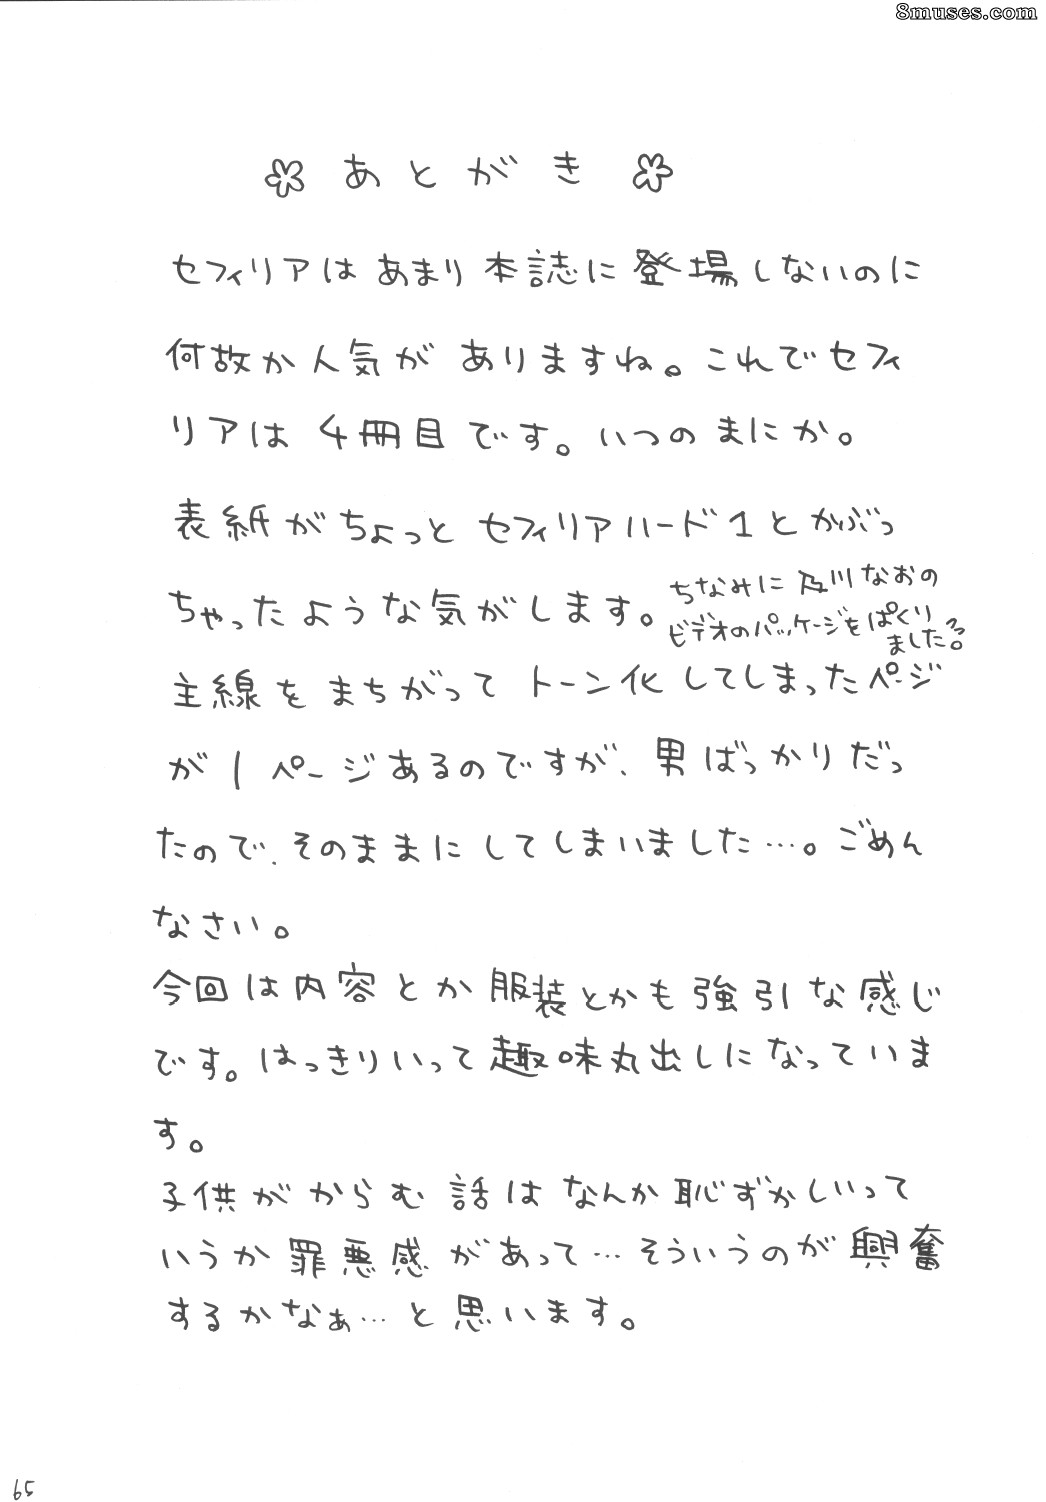 8muses.com
あとがき
セフィリアはあまり本誌に登場しないのに
何故か人気がありますね。これでセフィ
リアは4冊目です。いつのまにか。
表紙がちょっとセフィリアハード1とかぶっ
ちゃったような気がします。
ちなみに及川なおの
ビデオのパッケージをぱくり
ました。
主線をまちがってトーン化してしまったページ
が1ページあるのですが、男ばっかりだっ
たので、そのままにしてしまいました…。ごめん
なさい。
今回は内容とか服装とかも強引な感じ
です。はっきりいって趣味丸出しになっていま
す。
子供がからむ話はなんか恥ずかしいって
いうか罪悪感があって…そういうのが興奮
するかなぁ…と思います。
65